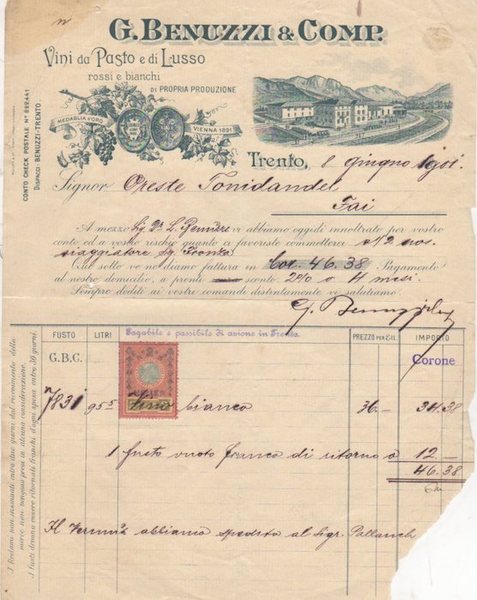 G. BENUZZI & COMP.
Vini da Pasto e di Lusso
rossi e bianchi
DI PROPRIA PRODUZIONE
MEDAGLIA D'ORO
VIENNA 1891
CONTO CHECK POSTALE Nº 892441
DISPACCI: BENUZZI-TRENTO
Trento, 8 Giugno 1901.
Signor Oreste Tonidandel
Fai
A mezzo vi abbiamo oggidì innoltrato per vostro
conto ed a vostro rischio quanto ci favoriste commetterci
viaggiatore sig.
Qui sotto ve ne diamo fattura in Cor. 46.38 Pagamento
al nostro domicilio, a pronti sconto 2% o 4 mesi.
Sempre dediti ai vostri comandi distintamente vi salutiamo.
G. Benuzzi
FUSTO LITRI Pagabile e passibile di azione in Trento. PREZZO PER E/LI. IMPORTO
G.B.C. Corone
7831 95 5 Vino bianco 36.- 34.38
1 fusto vuoto franco di ritorno a 12.-
46.38
Il Vermut abbiamo spedito al Sigr. Pallanch
I Reclami non avanzati entro due giorni dal ricevimento della
merce non vengono presi in alcuna considerazione.
I fusti devono essere ritornati franchi d'ogni spesa entro 30 giorni.